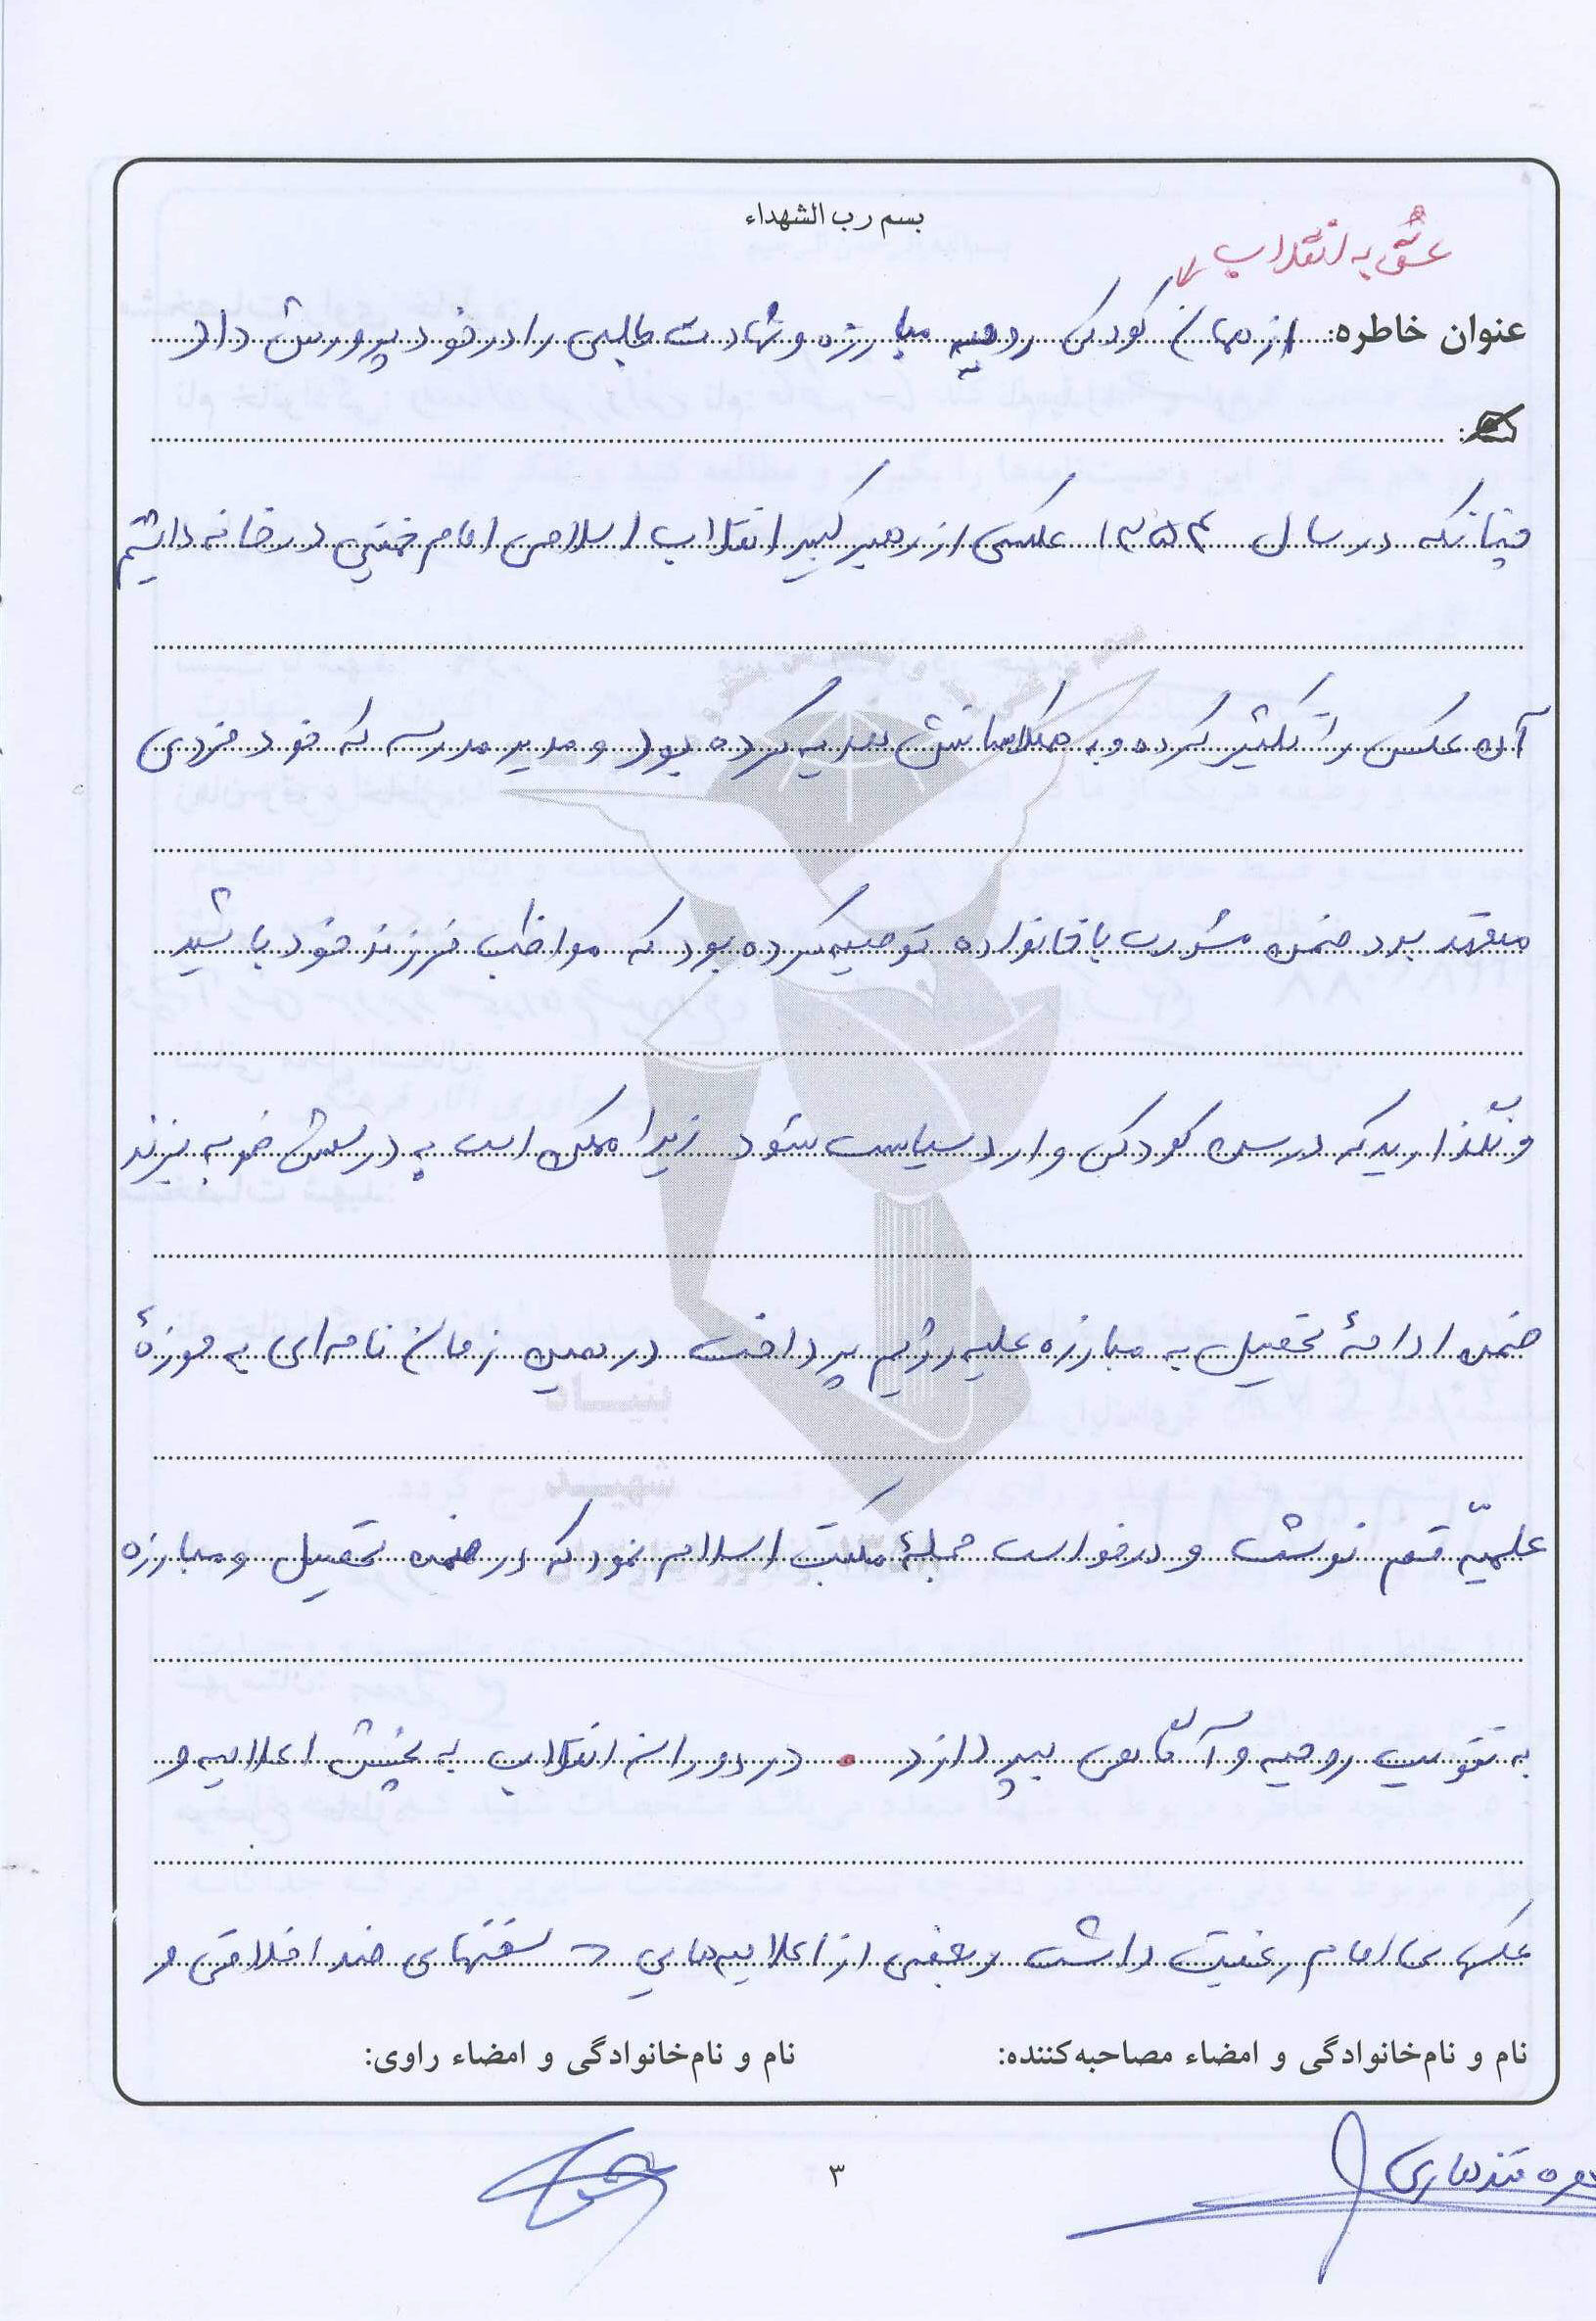 بسم رب الشهداء
عشق به انقلاب
عنوان خاطره: از همان کودکی روحیه مبارزه و شهادت طلبی را در خود پرورش داد
چنانکه در سال ۱۳۵۴ عکسی از رهبر کبیر انقلاب اسلامی امام خمینی در خانه داشتیم
آن عکس را تکثیر کرده و به همکلاسانش هدیه کرده بود و مدیر مدرسه که خود فردی
متعهد بود ضمن مشورت با خانواده توصیه کرده بود که مواظب فرزند خود باشید
و نگذارید که در سن کودکی وارد سیاست شود زیرا ممکن است به درسش ضربه بزند
ضمن ادامهٔ تحصیل به مبارزه علیه رژیم پرداخت در همین زمان نامه‌ای به حوزهٔ
علمیّه قم نوشت و درخواست مجلهٔ مکتب اسلام نمود که در ضمن تحصیل و مبارزه
به تقویت روحیه و آگاهی بپردازد . در دوران انقلاب به پخش اعلامیه و
عکسهای امام رغبت داشت و بعضی از اعلامیه‌هایی ضد اخلاقی و
نام و نام‌خانوادگی و امضاء مصاحبه‌کننده:
نام و نام‌خانوادگی و امضاء راوی:
قندهاری
۳